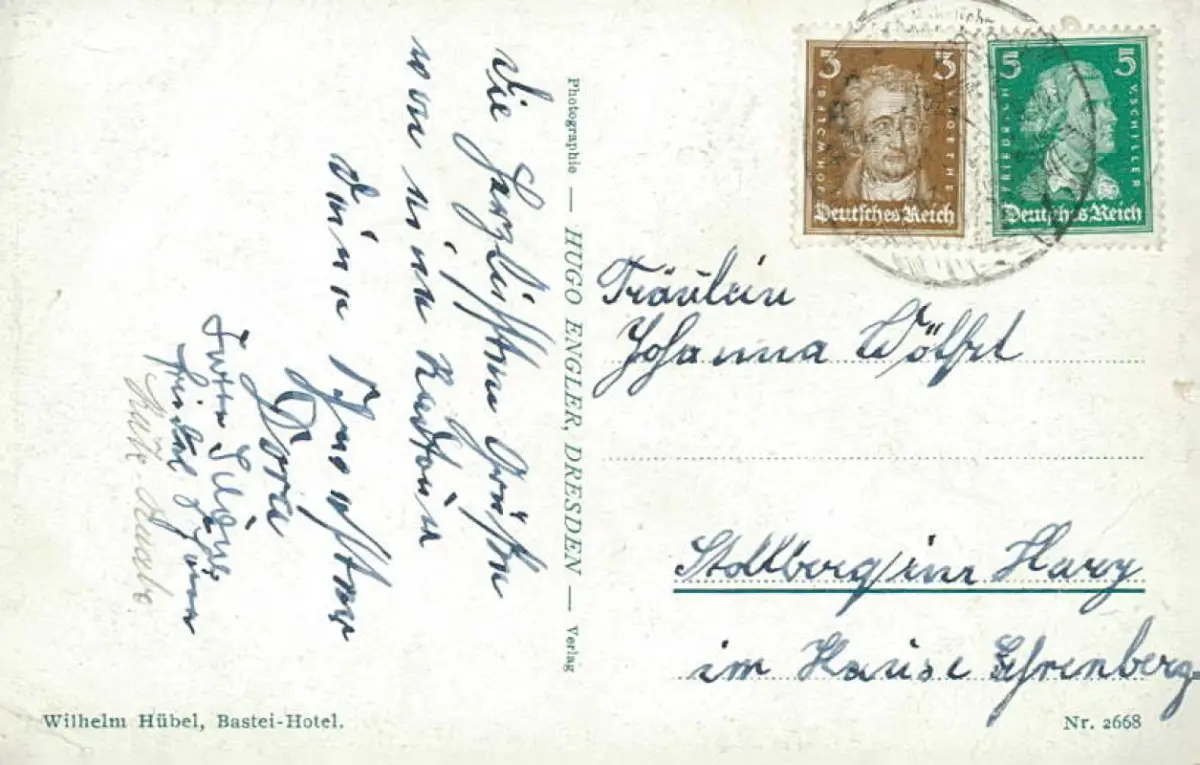 Die herzlichsten Grüße
von einer Radtour
deine Schwester
Dora
Photographie — HUGO ENGLER, DRESDEN — Verlag
3 3
JOH. WOLFG. V. GOETHE
Deutsches Reich
5 5
FRIEDRICH V. SCHILLER
Deutsches Reich
Fräulein
Johanna Wölfel
Stollberg/im Harz
im Hause Ehrenberg.
Wilhelm Hübel, Bastei-Hotel.
Nr. 2668